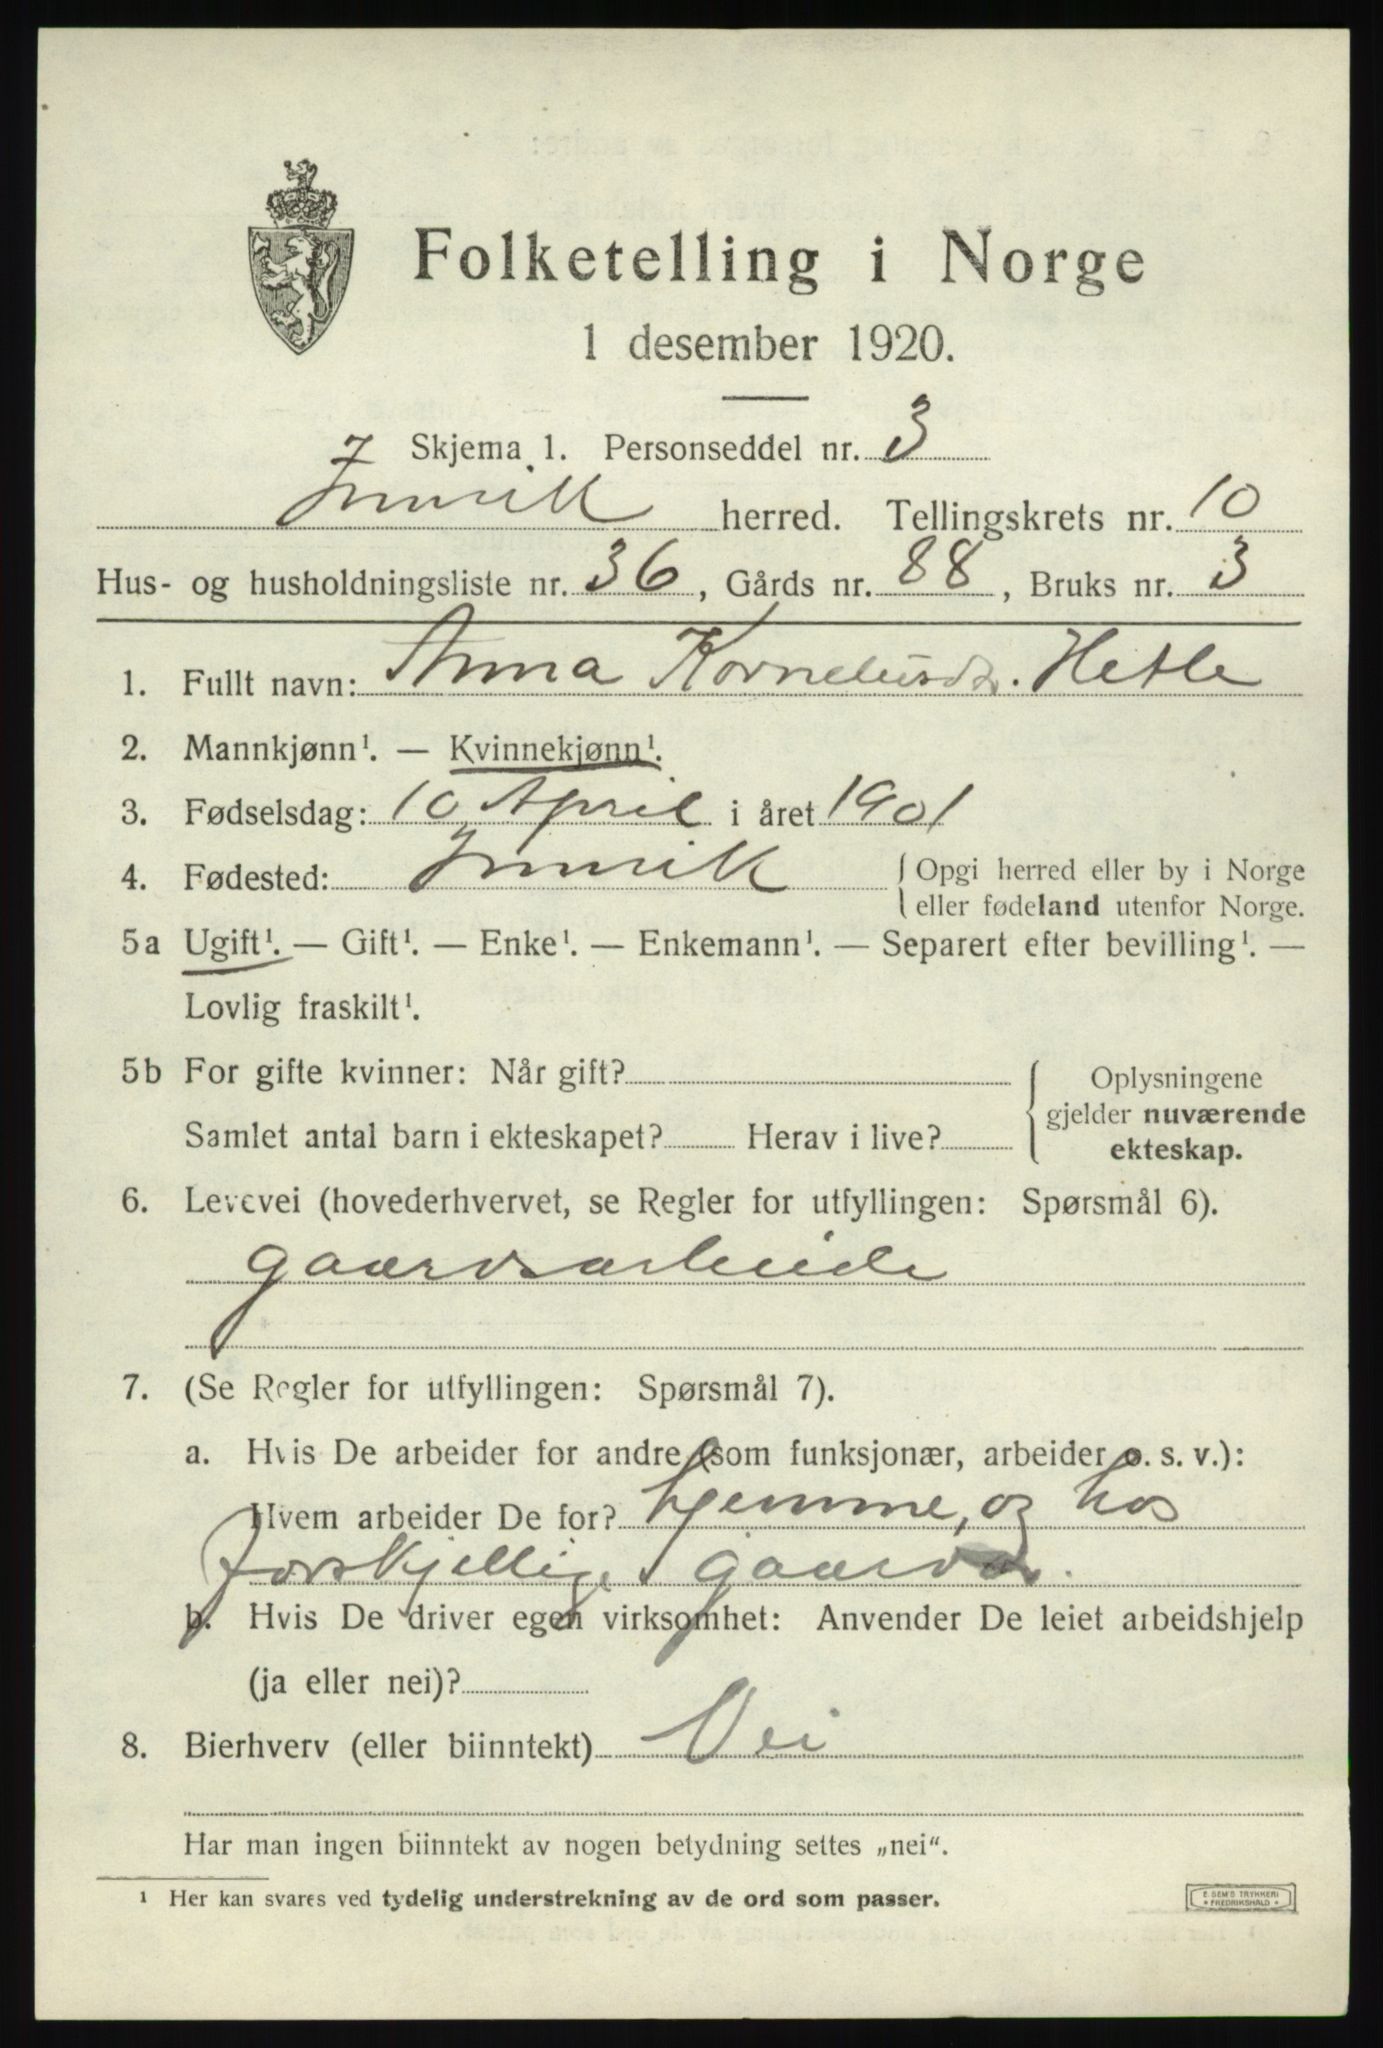 Folketelling i Norge
1 desember 1920.
Skjema 1. Personseddel nr. 3
Innvik herred. Tellingskrets nr. 10
Hus- og husholdningsliste nr. 36, Gårds nr. 88, Bruks nr. 3
1. Fullt navn: Anna Korneliusdtr. Hetle
2. Mannkjønn¹. — Kvinnekjønn¹.
3. Fødselsdag: 10 April i året 1901
4. Fødested: Innvik { Opgi herred eller by i Norge
eller fødeland utenfor Norge.
5a Ugift¹. — Gift¹. — Enke¹. — Enkemann¹. — Separert efter bevilling¹. —
Lovlig fraskilt¹.
5b For gifte kvinner: Når gift? { Oplysningene
gjelder nuværende
Samlet antal barn i ekteskapet? Herav i live?
ekteskap.
6. Levevei (hovederhvervet, se Regler for utfyllingen: Spørsmål 6).
gaardsarbeide
7. (Se Regler for utfyllingen: Spørsmål 7).
a. Hvis De arbeider for andre (som funksjonær, arbeider o. s. v.):
Hvem arbeider De for? hjemme, og hos
forskjellige gaarder.
b. Hvis De driver egen virksomhet: Anvender De leiet arbeidshjelp
(ja eller nei)?
8. Bierhverv (eller biinntekt) Nei
Har man ingen biinntekt av nogen betydning settes „nei“.
¹ Her kan svares ved tydelig understrekning av de ord som passer.
E. SEM'S TRYKKERI
• FREDRIKSHALD •